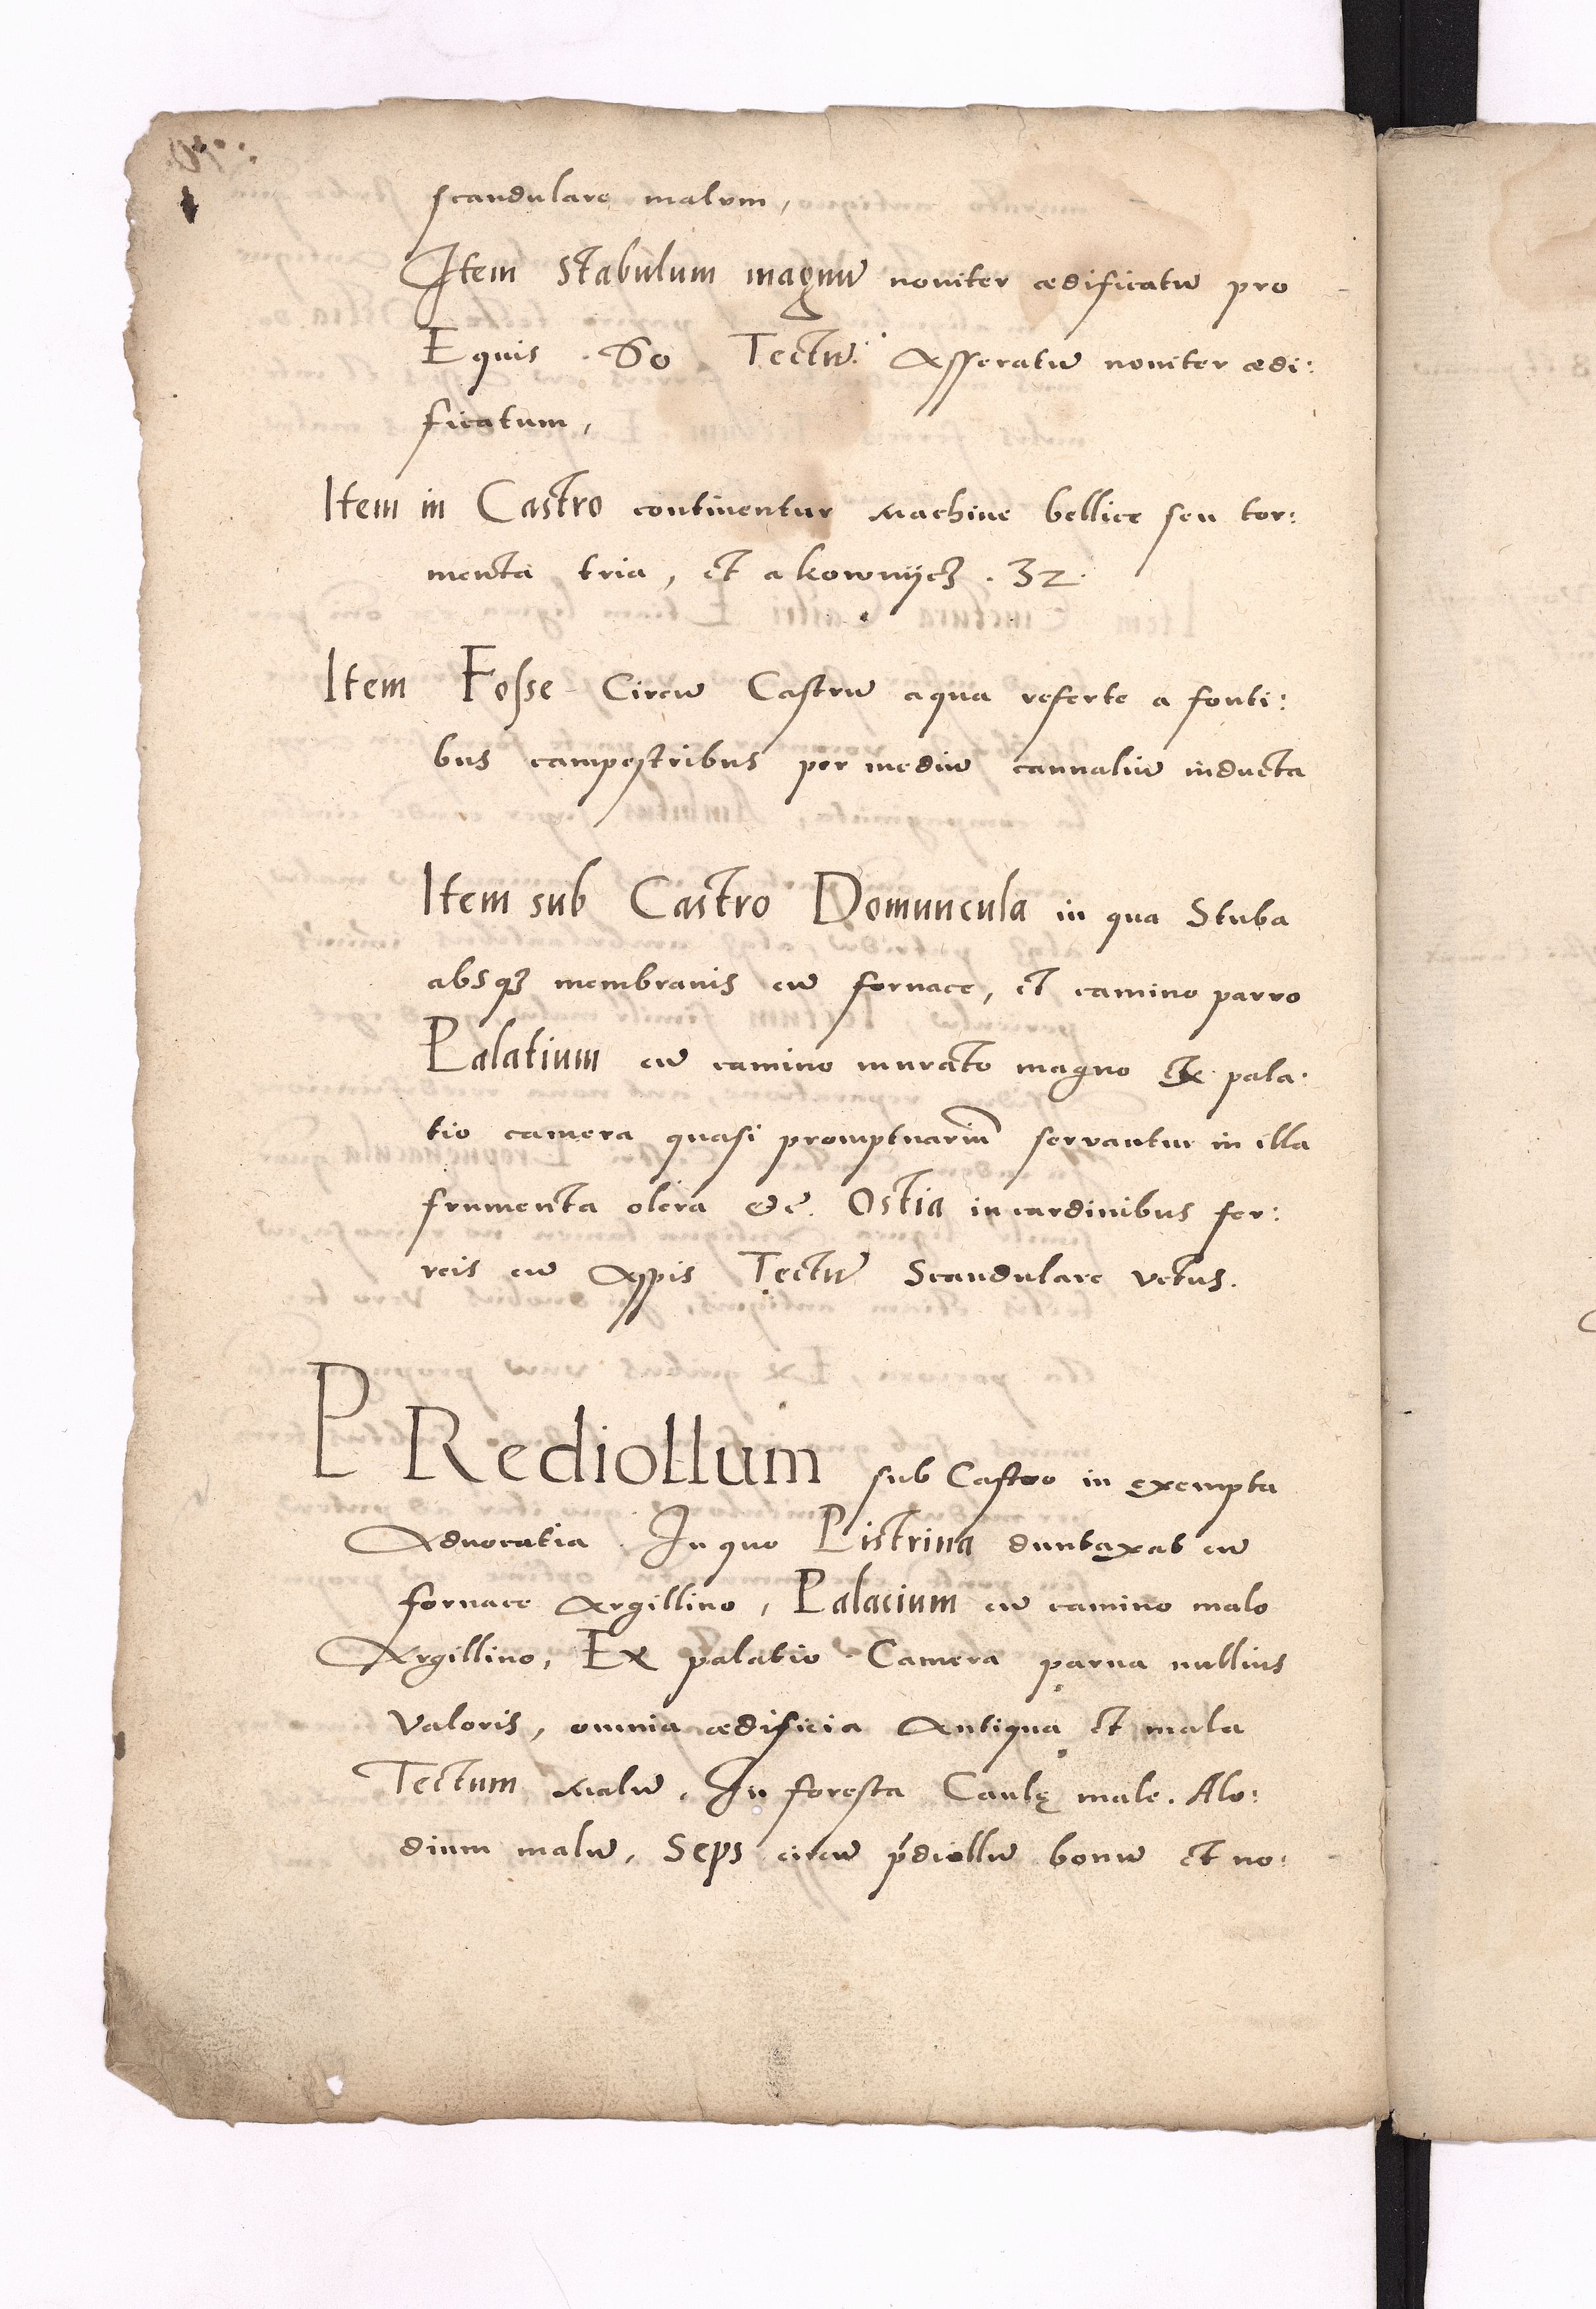 scandulare malum,
Item stabulum magnū noviter ædificatū pro
Equis . 60 Tectū. Asseratū noviter ædi:
ficatum,
Item in Castro continentur machine bellice seu tor:
menta tria, et akownijcz . 32.
Item Fosse Circū Castrū aqua referte a fonti:
bus campestribus per mediū cannaliū inducta
Item sub Castro Domuncula in qua Stuba
absqз membranis cū fornace, et camino parvo
Palatium cū camino murato magno Ex pala:
tio camera quasi promptuariū servantur in illa
frumenta olera &c. Ostia in cardinibus fer:
reis cū Appis Tectū Scandulare vetus.
PRediollum sub Castro in exempta
Advocatia . In quo Pistrina duntaxat cū
fornace Argillino, Palacium cū camino malo
Argillino, Ex palatio Camera parva nullius
valoris, omnia ædificia Antiqua et mala
Tectum malū. In foresta Caulę male. Alo:
dium malū, Seps circū p̄diollū bonū et no: